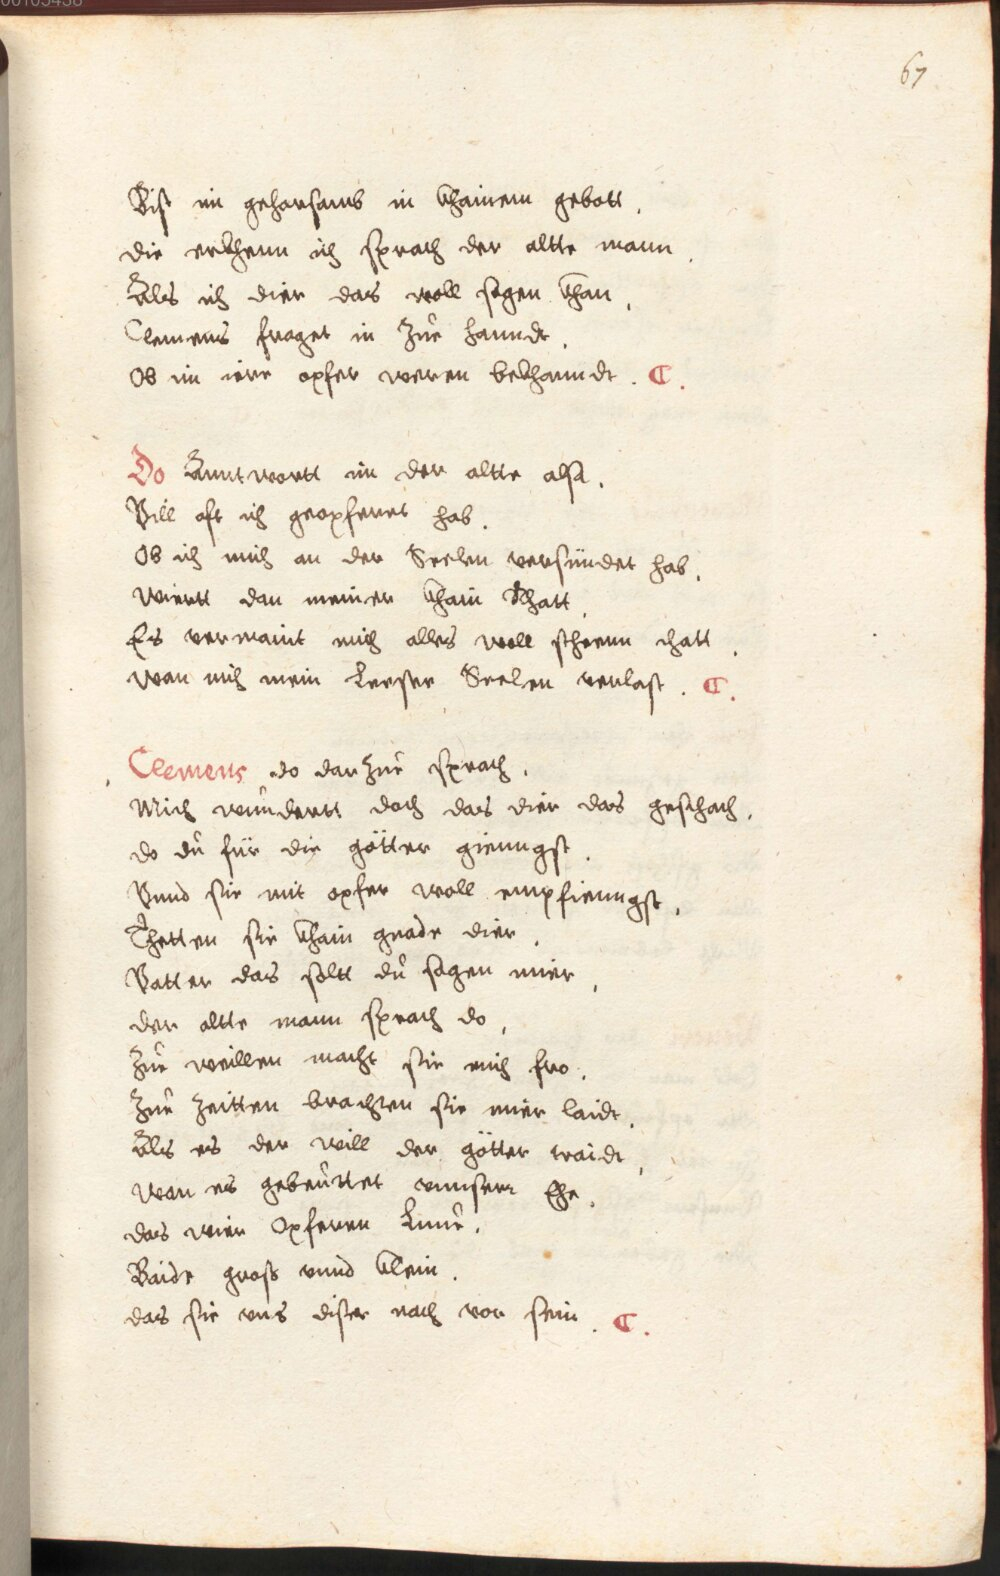 00103458
67
Bist im gehorsams in khainem gebott .
die erkhenn ich sprach der altte mann .
Als ich dier das woll sagen khan .
Clemens fraget in Zue hanndt .
Ob im iere opfer weren bekhanndt . C .
Do Anntwortt im der altte also .
Vill oft ich geopfferet hab .
Ob ich mich an der Seelen versündet hab .
Wiertt dan meiner khain Rhatt .
Es vermaint mich alles woll gehenn thatt .
Wan mich mein Leeste Seelen verlast . C .
Clemens do darZue sprach .
Mich wundertt doch das dier das geschach .
do du für die götter gienngst .
Vnnd sie mit opfer woll empfienngst .
Thetten sie khain gnade dier .
Vatter das soltt du sagen mier .
der altte mann sprach do .
Zue weillen macht sie mich fro .
Zue Zeitten brachten sie mier laidt .
Als es der will der götter traidt .
Wan es gebeuttet unnsere Ehe .
das wier Opferen
Baide gross vnnd klein .
das sie vns dister nach vor sein . C .